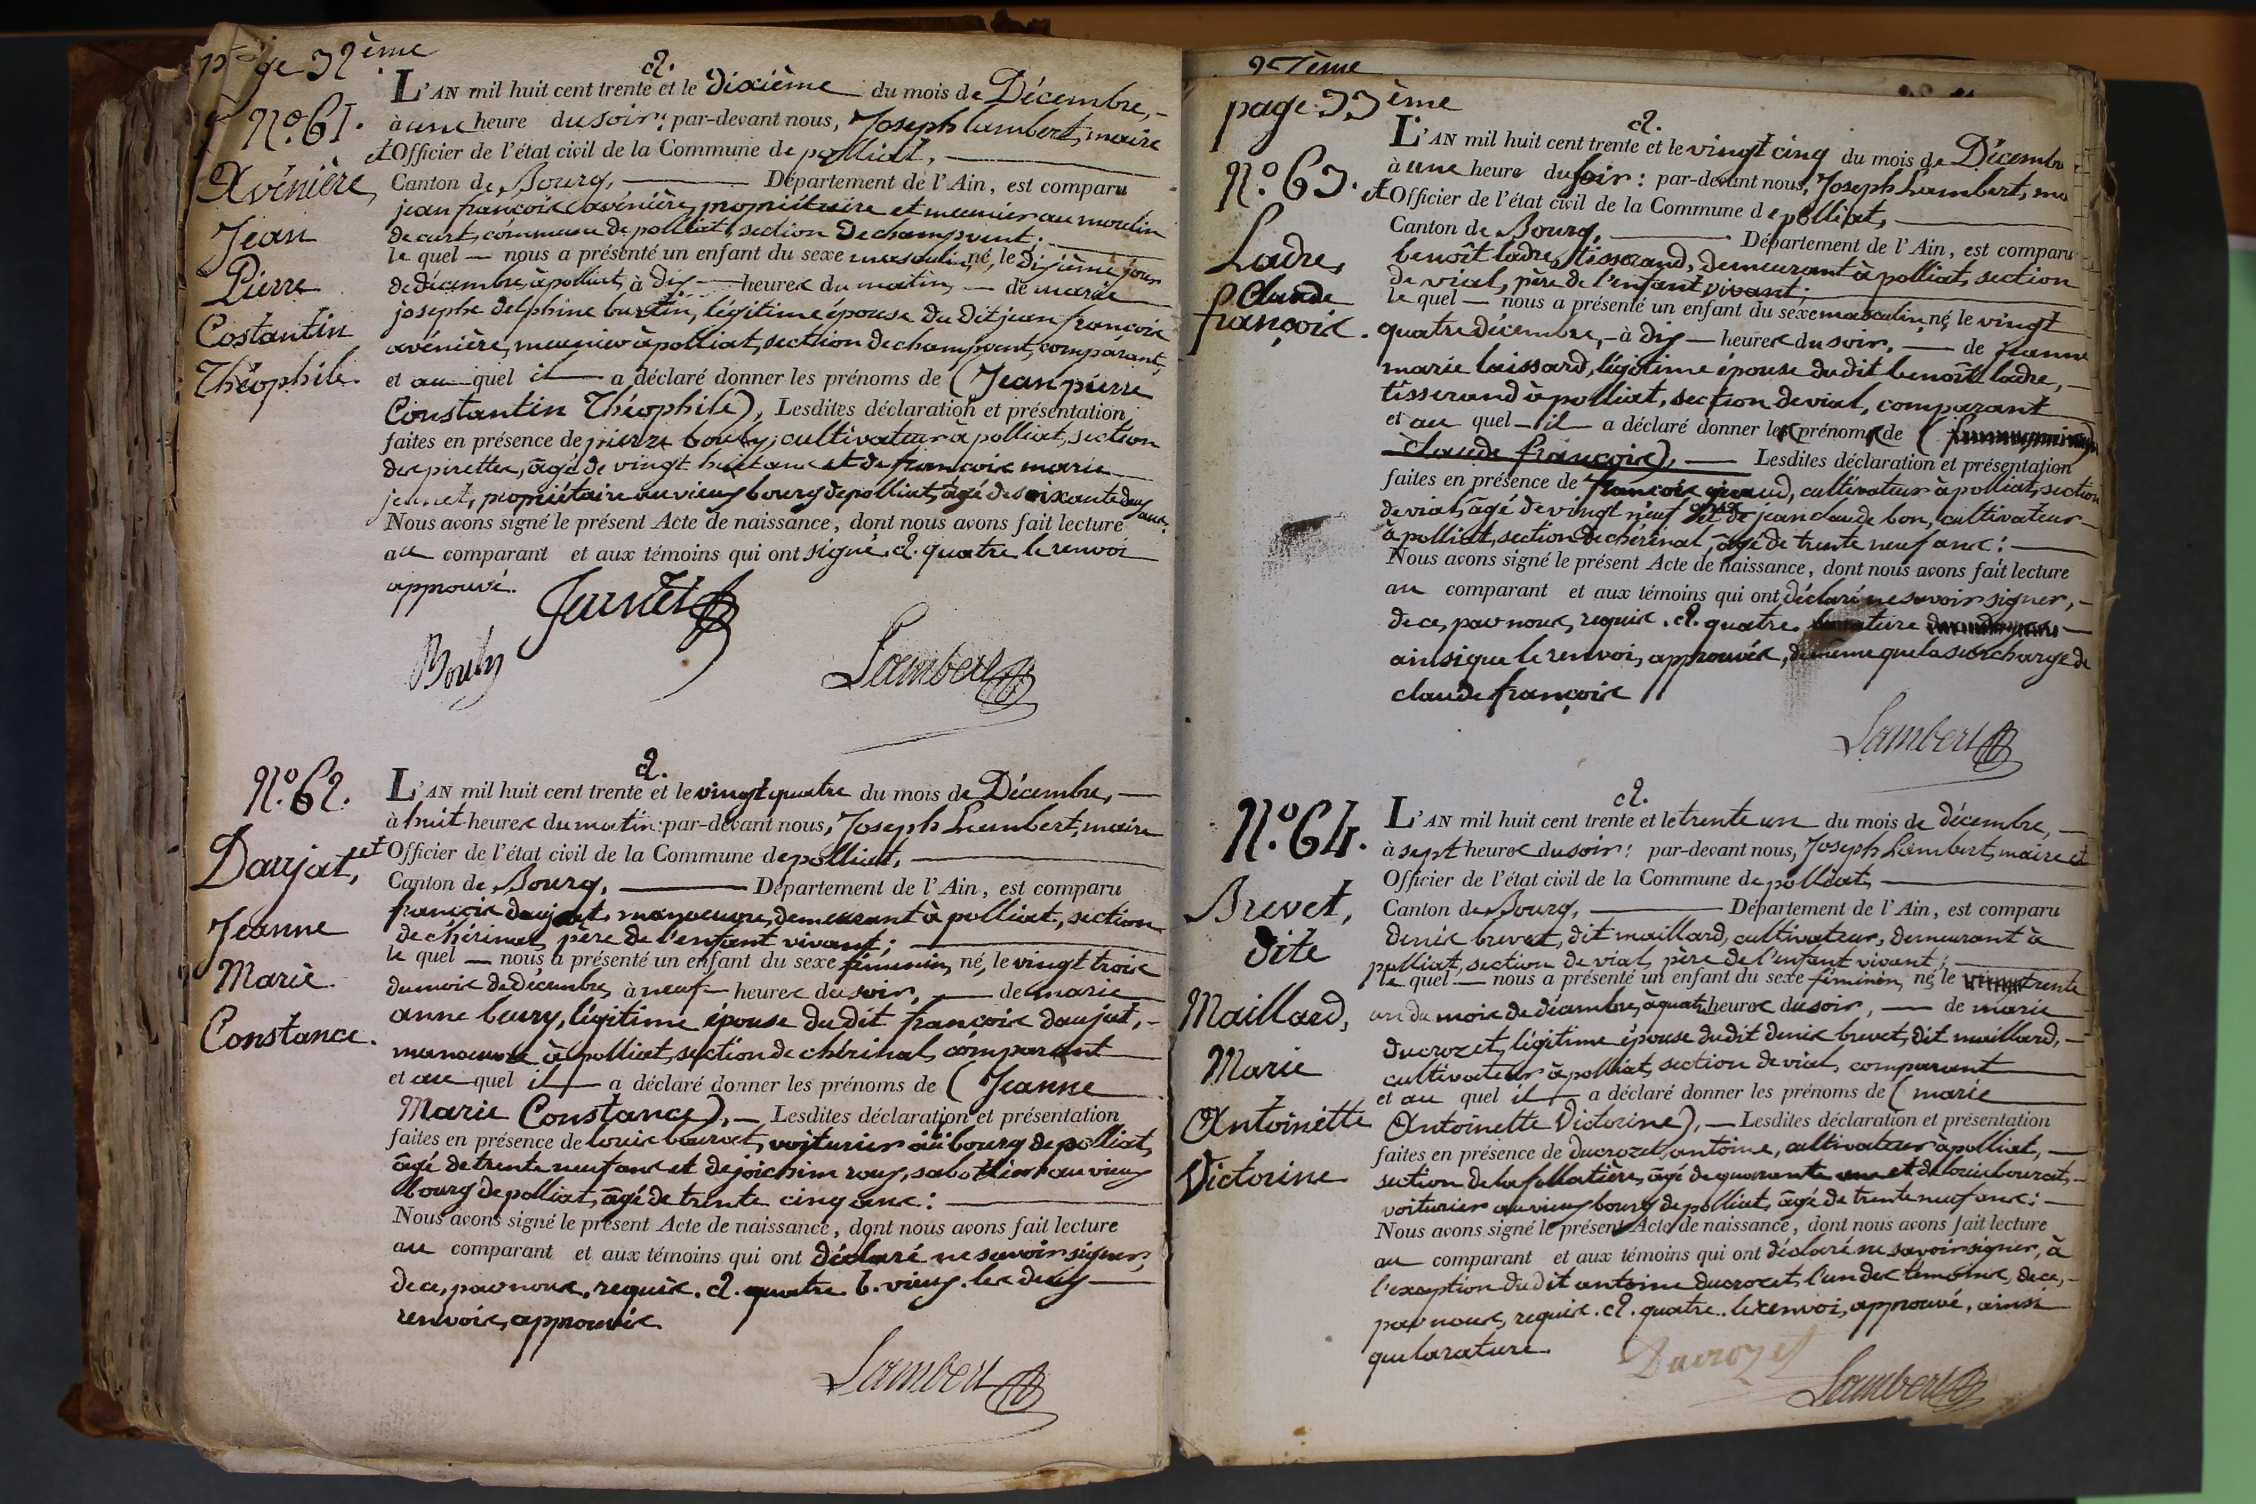 page 32ème
N.º 61.
Avénière,
Jean
Pierre
Costantin
Théophile.
a.
L'AN mil huit cent trente et le Dixième du mois de Décembre,
à une heure du soir: par-devant nous, Joseph Lambert, maire
et Officier de l'état civil de la Commune de polliat,
Canton de Bourg, Département de l'Ain, est comparu
jean françois avénière, propriétaire et meunier au moulin
de curt, commune de polliat, section de champvent;
le quel nous a présenté un enfant du sexe masculin, né, le dixième jour
de décembre, à polliat, à dix heures du matin, de marie
josephe delphine burtin, légitime épouse du dit jean françois
avénière, meunier à polliat, section de champvent, comparant,
et au quel il a déclaré donner les prénoms de (Jean pierre
Constantin Théophile), Lesdites déclaration et présentation
faites en présence de pierre bouly, cultivateur à polliat, section
des pirettes, âgé de vingt huit ans et de françois marie
jeunet, propriétaire au vieux bourg de polliat, âgé de soixante deux ans.
Nous avons signé le présent Acte de naissance, dont nous avons fait lecture
au comparant et aux témoins qui ont signé. a. quatre le renvoi
approuvé.
Jeunet
Bouly
Lambert
N.º 62.
Daujat,
Jeanne
Marie
Constance.
a.
L'AN mil huit cent trente et le vingt quatre du mois de Décembre,
à huit heures du matin: par-devant nous, Joseph Lambert, maire
et Officier de l'état civil de la Commune de polliat,
Canton de Bourg, Département de l'Ain, est comparu
françois daujat, manoeuvre, demeurant à polliat, section
de chérinal, père de l'enfant vivant;
le quel nous a présenté un enfant du sexe féminin, né, le vingt trois
du mois de décembre, à neuf heures du soir, de marie
anne beury, légitime épouse du dit françois daujat,
manoeuvre à polliat, section de chérinal, comparant
et au quel il a déclaré donner les prénoms de (Jeanne
Marie Constance), Lesdites déclaration et présentation
faites en présence de louis bourcet, voiturier au bourg de polliat,
âgé de trente neuf ans et de joichim roux, sabottier au vieux
bourg de polliat, âgé de trente cinq ans:
Nous avons signé le présent Acte de naissance, dont nous avons fait lecture
au comparant et aux témoins qui ont déclaré ne savoir signer,
de ce, par nous, requis. a. quatre b. vieux. les deux
renvois, approuvés
Lambert
27ème
page 33ème
N.º 63.
Ladre,
Claude
françois.
a.
L'AN mil huit cent trente et le vingt cinq du mois de Décembre
à une heure du soir: par-devant nous, Joseph Lambert, ma
et Officier de l'état civil de la Commune de polliat,
Canton de Bourg, Département de l'Ain, est comparu
benoît ladre, tisserand, demeurant à polliat, section
de vial, père de l'enfant vivant;
le quel nous a présenté un enfant du sexe masculin, né, le vingt
quatre décembre, à dix heures du soir, de jeanne
marie laissard, légitime épouse du dit benoît ladre,
tisserand à polliat, section de vial, comparant
et au quel il a déclaré donner les prénoms de (
Claude françois), Lesdites déclaration et présentation
faites en présence de françois giraud, cultivateur à polliat, section
de vial, âgé de vingt neuf ans et de jean claude bon, cultivateur
à polliat, section de chérinal, âgé de trente neuf ans:
Nous avons signé le présent Acte de naissance, dont nous avons fait lecture
au comparant et aux témoins qui ont déclaré ne savoir signer,
de ce, par nous, requis. a. quatre. la rature
ainsi que le renvoi, approuvés, de même que la surcharge de
claude françois
Lambert
N.º 64.
Brevet,
dite
Maillard,
Marie
Antoinette
Victorine
a.
L'AN mil huit cent trente et le trente un du mois de décembre,
à sept heures du soir: par-devant nous, Joseph Lambert, maire et
Officier de l'état civil de la Commune de polliat,
Canton de Bourg, Département de l'Ain, est comparu
denis brevet, dit maillard, cultivateur, demeurant à
polliat, section de vial, père de l'enfant vivant;
le quel nous a présenté un enfant du sexe féminin, né, le trente
un du mois de décembre, à quatre heures du soir, de marie
ducrozet, légitime épouse du dit denis brevet, dit maillard,
cultivateur à polliat, section de vial, comparant
et au quel il a déclaré donner les prénoms de (marie
Antoinette Victorine), Lesdites déclaration et présentation
faites en présence de ducrozet, antoine, cultivateur à polliat,
section de la follatière, âgé de quarante ans et de louis bourcet,
voiturier au vieux bourg de polliat, âgé de trente neuf ans:
Nous avons signé le présent Acte de naissance, dont nous avons fait lecture
au comparant et aux témoins qui ont déclaré ne savoir signer, à
l'exception du dit antoine ducrozet, l'un des témoins, de ce,
par nous, requis. a. quatre. le renvoi, approuvé, ainsi
que la rature.
Ducrozet
Lambert